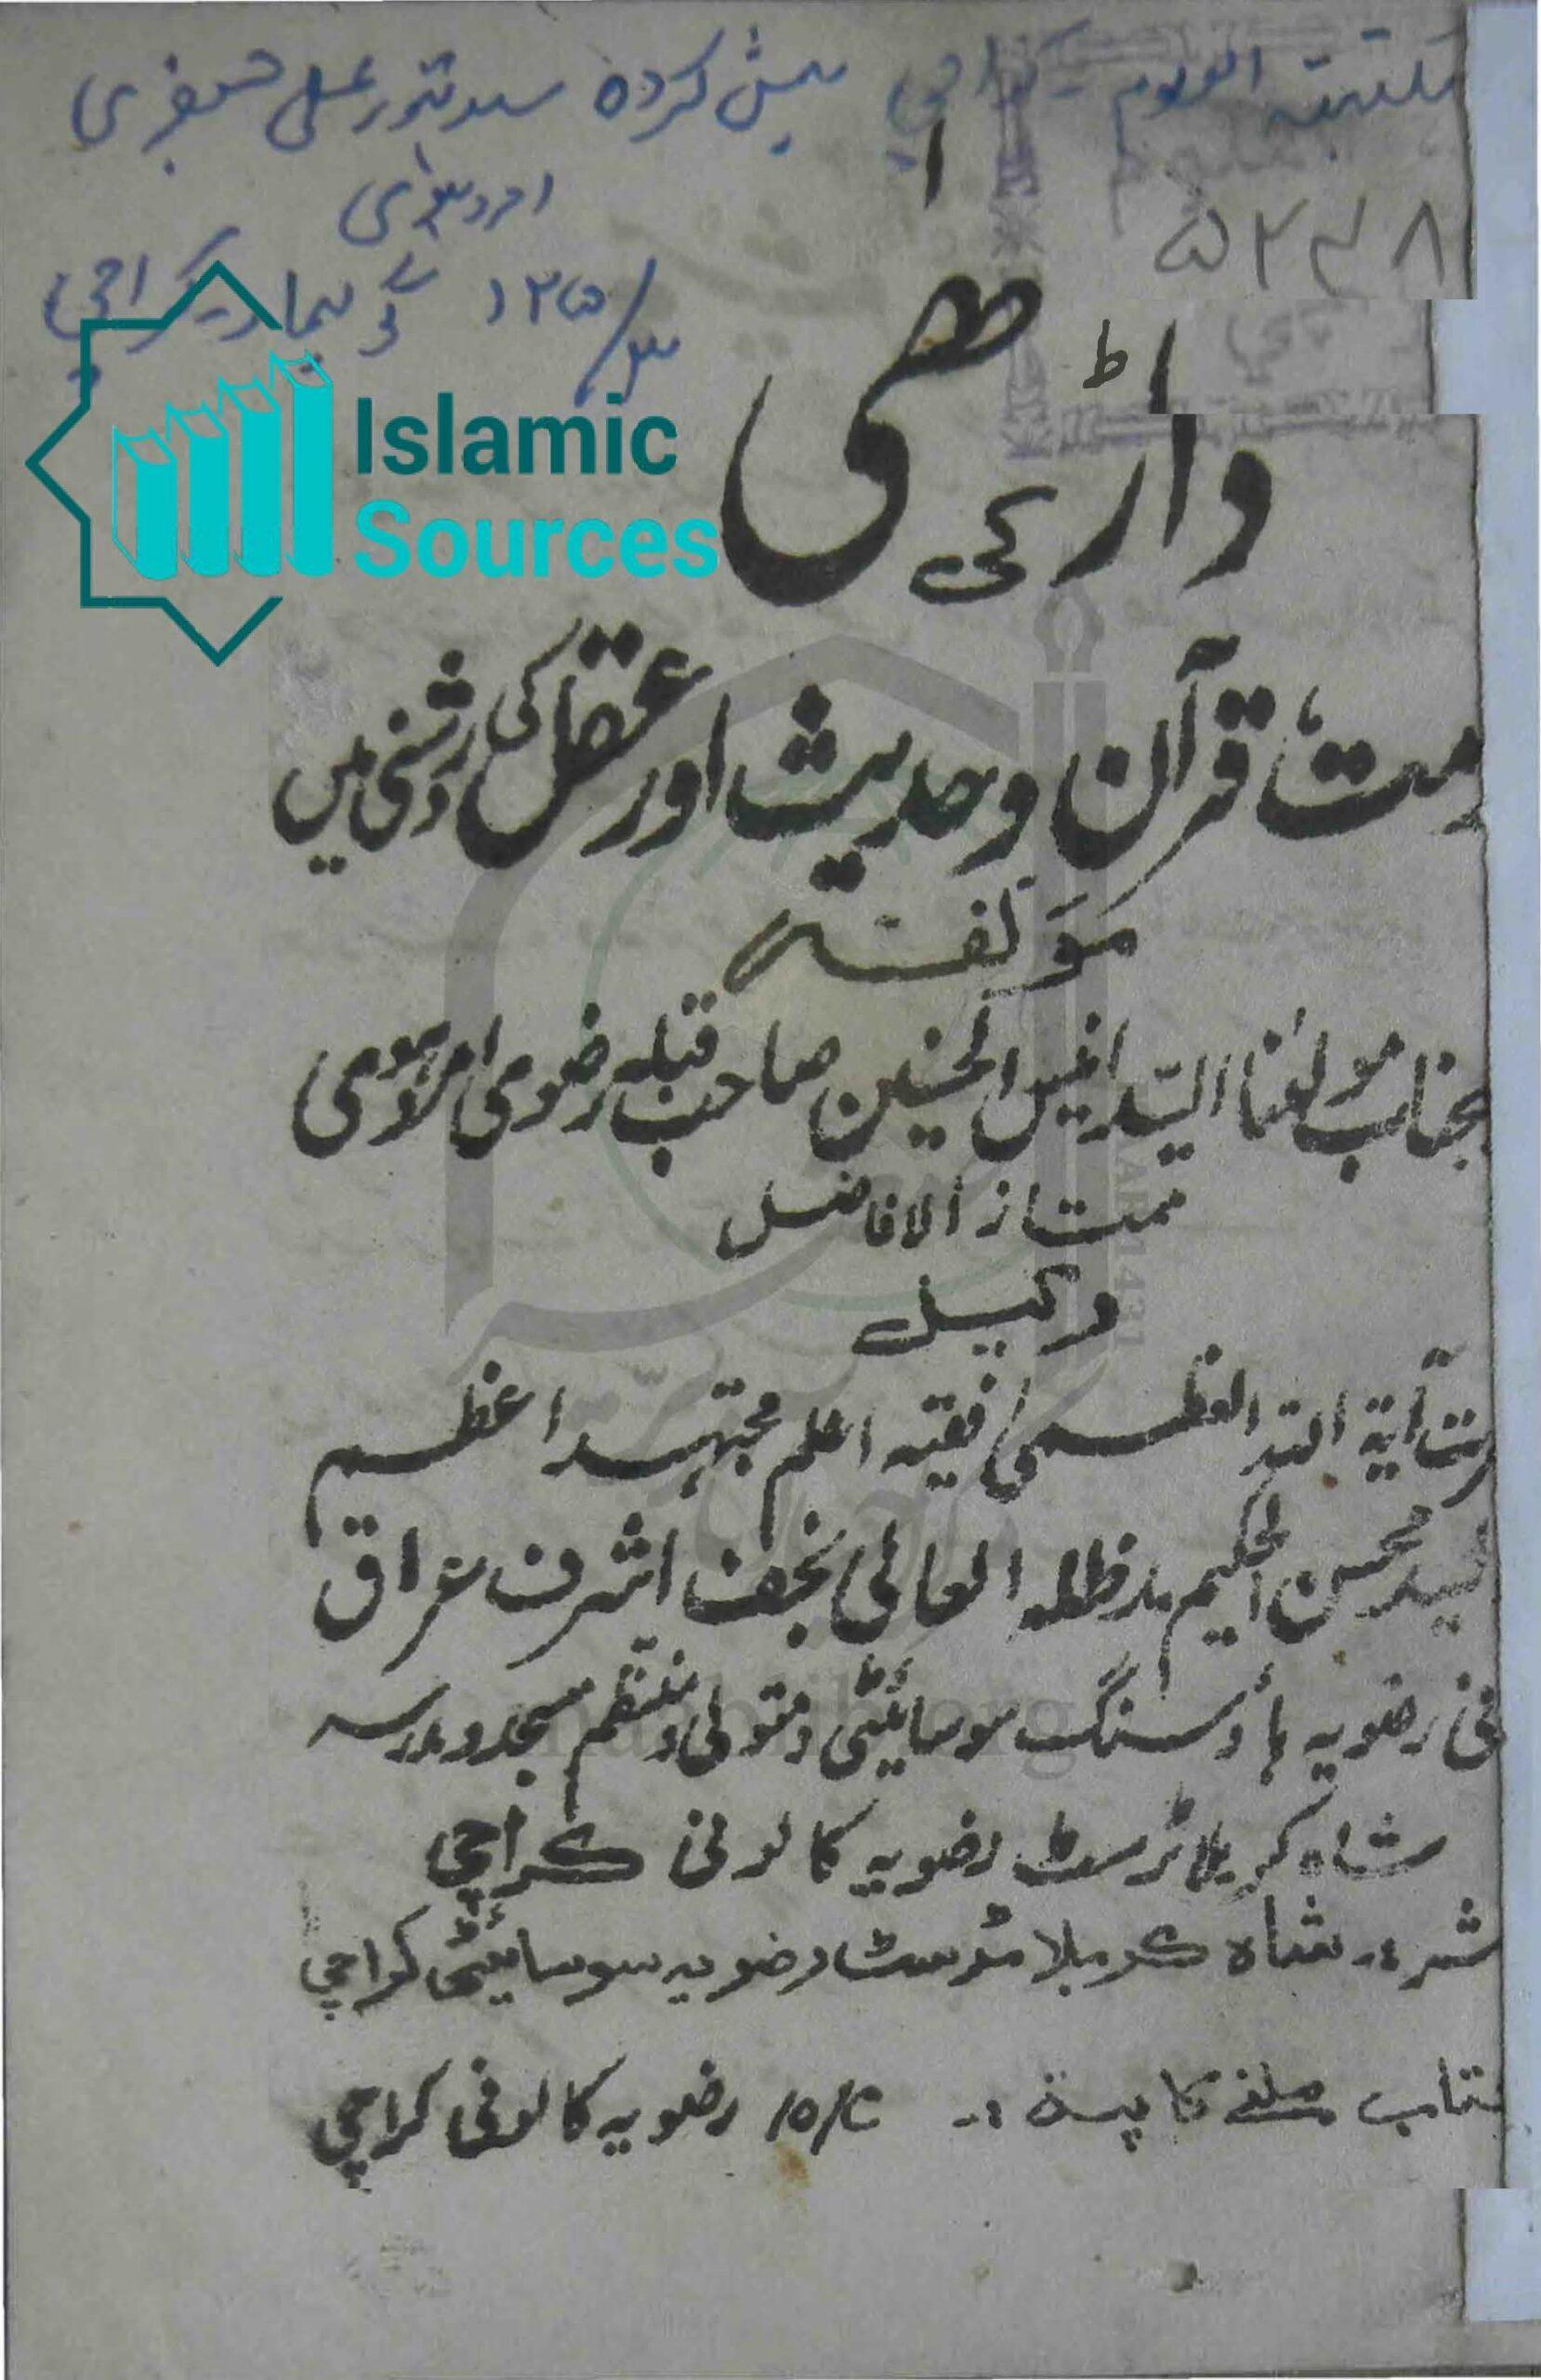 پیش کردہ سید تنویر علی جعفری
۵۲۴۸
Islamic
Sources
داڑھی کی
مت، قرآن و حدیث اور عقل کی روشنی میں
مؤلفہ
جناب مولٰنا السید انیس الحسنین صاحب قبلہ رضوی امروہوی
ممتاز الافاضل
وکیل
آیۃ اللہ العظمیٰ فقیہ اعلم مجتہد اعظم
السید محسن الحکیم مدظلہ العالی نجف اشرف عراق
رضویہ ہاؤسنگ سوسائیٹی و متولی و منتظم مسجد و مدرسہ
شاہ کربلا ٹرسٹ رضویہ کالونی کراچی
شر :۔ شاہ کربلا ٹرسٹ رضویہ سوسائیٹی کراچی
تاب ملنے کا پتہ :۔ ۱۵/C رضویہ کالونی کراچی